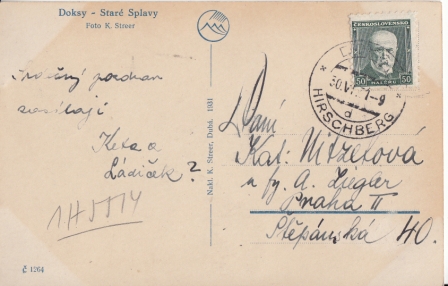 Doksy - Staré Splavy
Foto K. Streer
Srdečný pozdrav
zasílají
Keta a
Ládíček?
1H5514
Č 1264
Nakl. K. Streer, Dubá. 1931
ČESKOSLOVENSKO
50 HALÉŘŮ 50
30.VI. 1-9
HIRSCHBERG
d
Paní
Kat. Nitzetová
u fy. A. Ziegler
Praha II
Štěpánská 40.